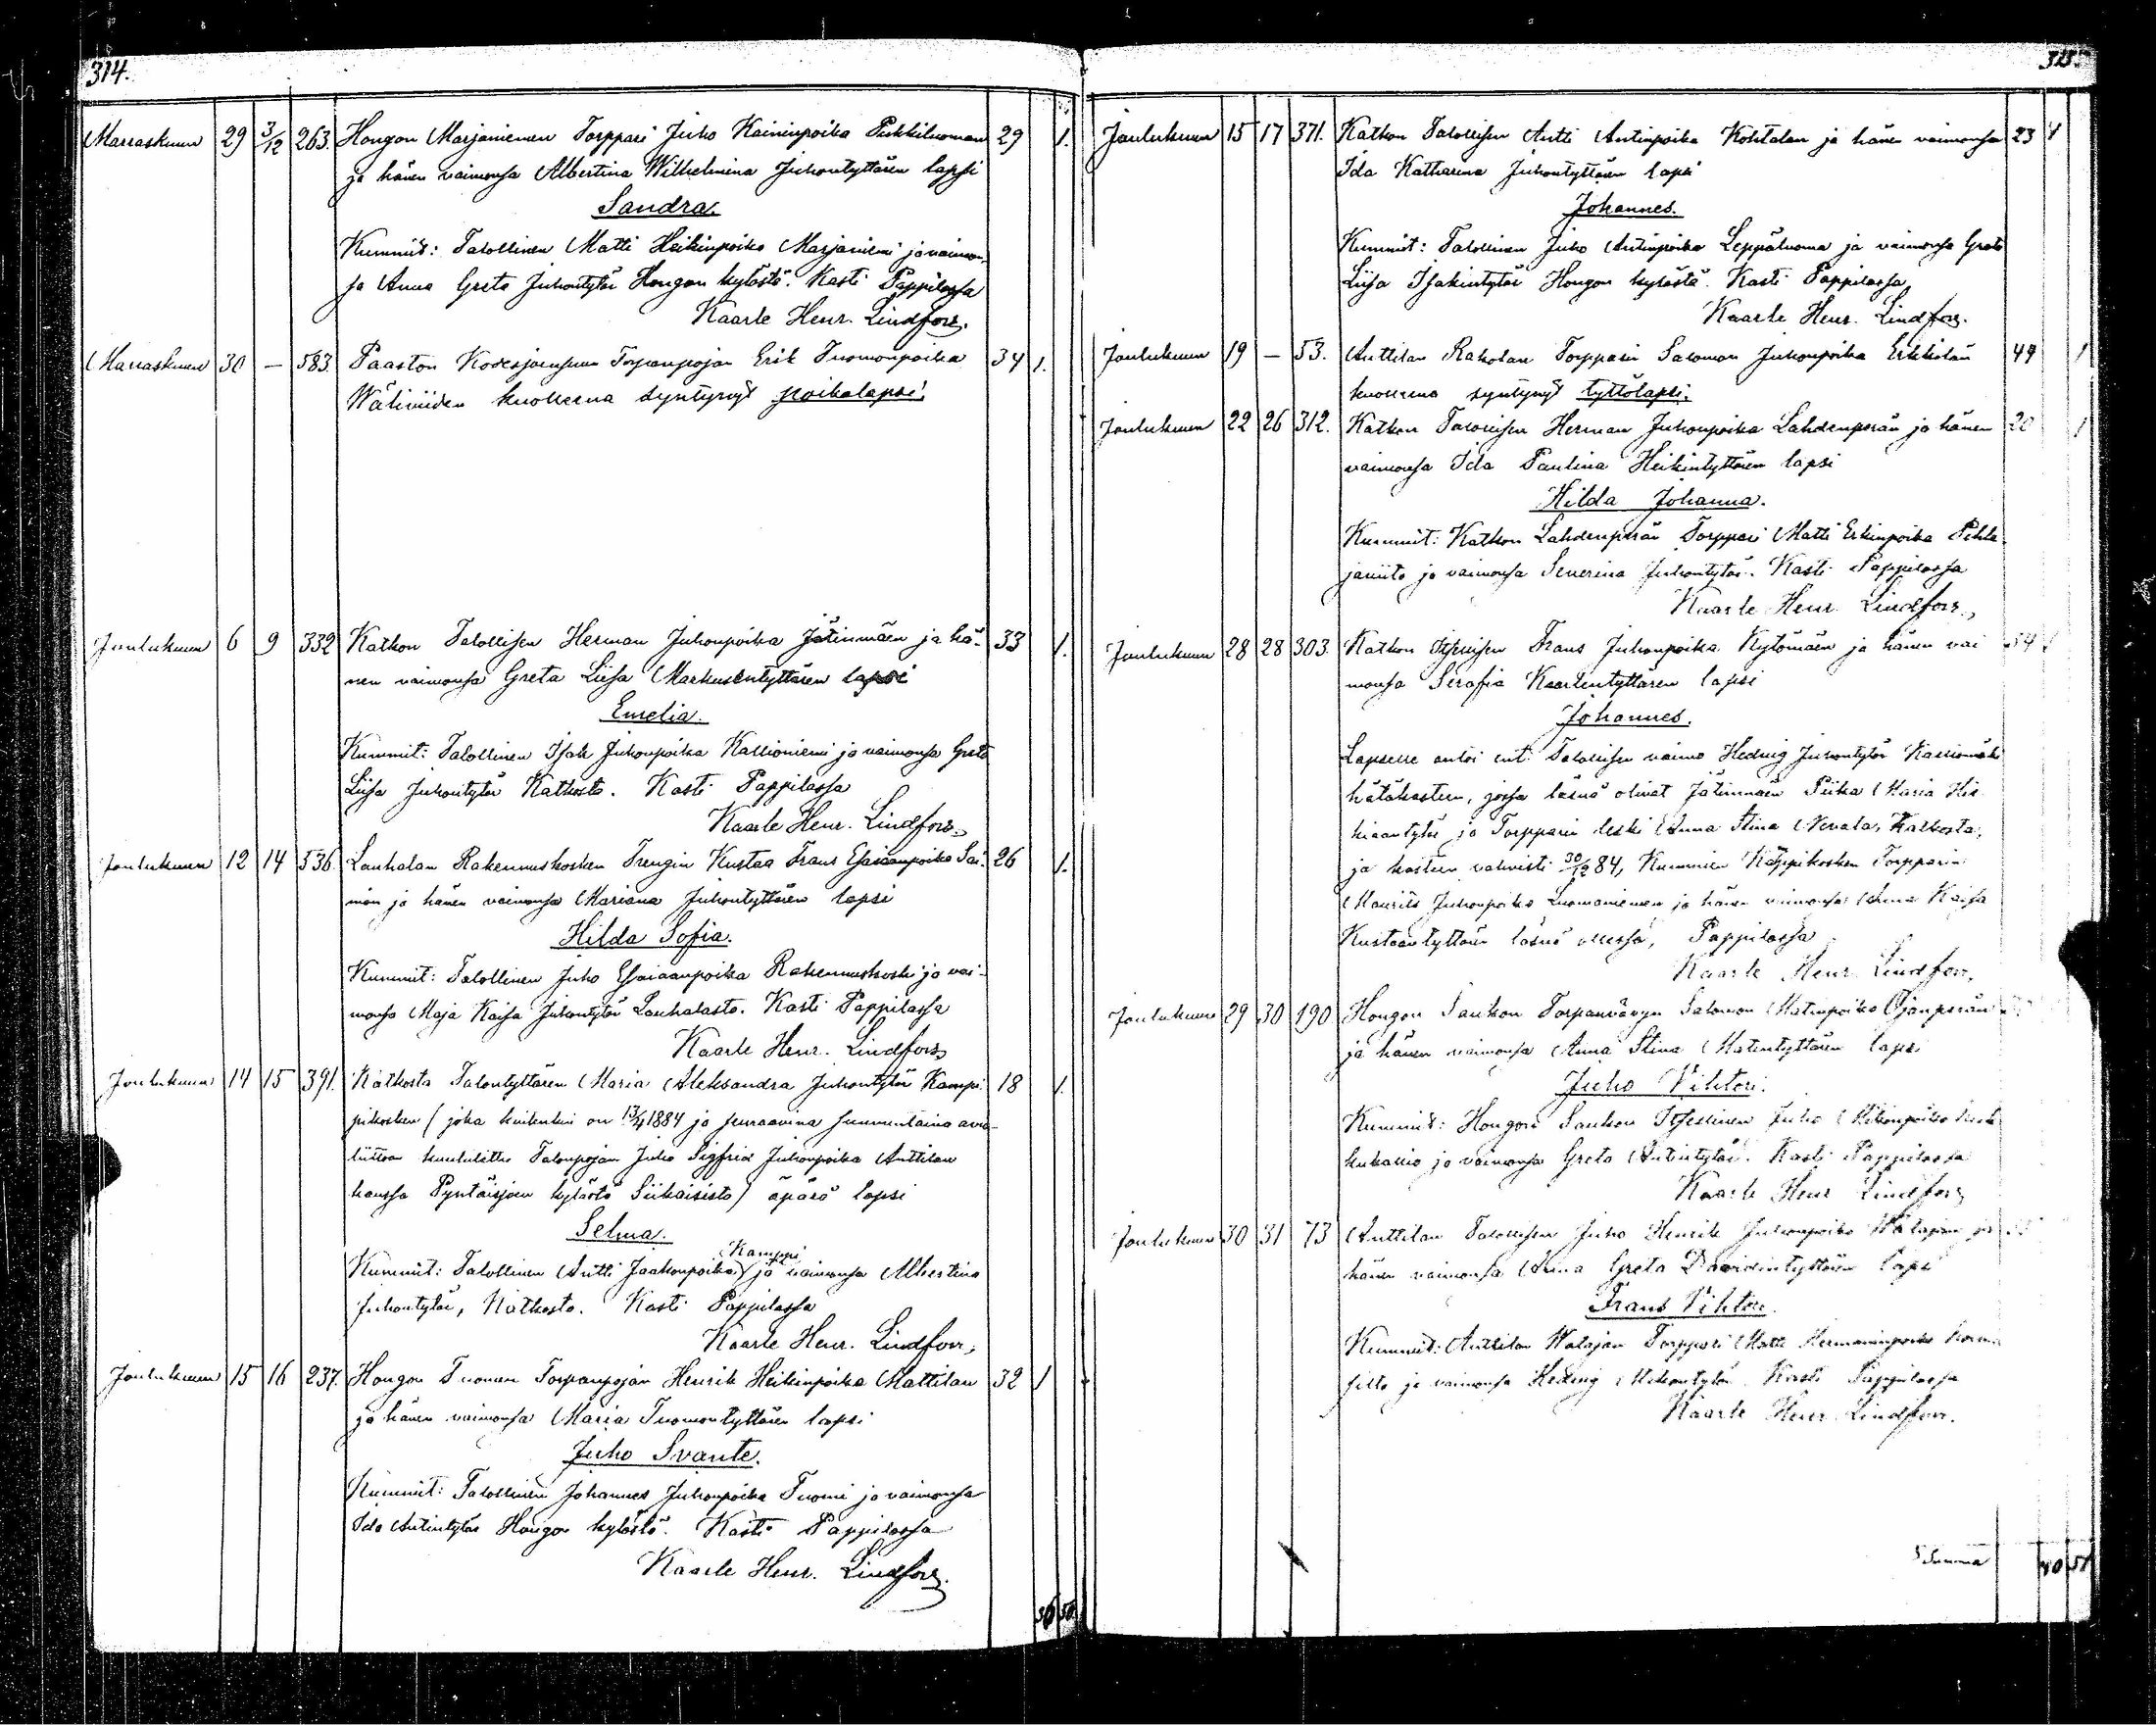 314.
Marraskuun 29 3/12 263. Hongon Marjaniemen Torppari Juho Kaininpoika Pukkiluoman 29 1.
ja hänen vaimonsa Albertina Wilhelmina Juhontyttären lapsi
Sandra.
Kummit: Talollinen Matti Heikinpoika Marjaniemi ja vaimon-
sa Anna Greta Juhontytär Hongon kylästä. Kasti Pappilassa
Kaarle Henr. Lindfors.
Marraskuun 30 — 583. Paaston Torpanpojan Erik Tuomonpoika 34 1.
kuolleena syntynyt poikalapsi.
Joulukuun 6 9 332 Katkon Talollisen Herman Juhonpoika Jätinmäen ja hä- 33 1.
nen vaimonsa Greta Liisa Markusentyttären lapsi
Emelia.
Kummit: Talollinen Isak Juhonpoika Kallioniemi ja vaimonsa Greta
Liisa Juhontytär Katkosta. Kasti Pappilassa
Kaarle Henr. Lindfors.
Joulukuun 12 14 536. Lauhalan Rakennuskosken Trengin Kustaa Frans Esaiaanpoika Sal- 26 1.
män ja hänen vaimonsa Mariana Juhontyttären lapsi
Hilda Sofia.
Kummit: Talollinen Juho Esaiaanpoika Rakennuskoski ja vai-
monsa Maja Kaisa Juhontytär Lauhalasta. Kasti Pappilassa
Kaarle Henr. Lindfors.
Joulukuun 14 15 391. Katkosta Talontyttären Maria Aleksandra Juhontytär Kamp- 18 1.
pikosken (joka kuitenkin on 13/4 1884 ja seuraavina sunnuntaina avio-
liittoon kuulutettu Talonpojan Juho Sigfrid Juhonpoika Anttilan
kanssa Pyntäisjoen kylästä Siikaisista) äpärä lapsi
Selma.
Kamppi
Kummit: Talollinen Antti Jaakonpoika ja vaimonsa Albertina
Juhontytär, Katkosta. Kasti Pappilassa
Kaarle Henr. Lindfors,
Joulukuun 15 16 237. Hongon Tuomen Torpanpojan Henrik Heikinpoika Mattilan 32 1
ja hänen vaimonsa Maria Tuomontyttären lapsi
Juho Svante.
Kummit: Talollinen Johannes Juhonpoika Tuomi ja vaimonsa
Ida Antintytär Hongon kylästä. Kasti Pappilassa
Kaarle Henr. Lindfors.
315.
Joulukuun 15 17 371. Katkon Talollisen Antti Antinpoika Kohtalan ja hänen vaimonsa 23 1
Ida Katharina Juhontyttären lapsi
Johannes.
Kummit: Talollinen Juho Antinpoika Leppäluoma ja vaimonsa Greta
Liisa Isakintytär Hongon kylästä. Kasti Pappilassa
Kaarle Henr. Lindfors.
Joulukuun 19 — 53. Anttilan Rakolan Torpparin Salomon Juhonpoika Erkkilän 44 1
kuolleena syntynyt tyttölapsi.
Joulukuun 22 26 312. Katkon Talollisen Herman Juhonpoika Lahdenperän ja hänen 20 1
vaimonsa Ida Paulina Heikintyttären lapsi
Hilda Johanna.
Kummit: Katkon Lahdenperän Torppari Matti Erkinpoika Pihla-
janiitö ja vaimonsa Severina Juhontytär. Kasti Pappilassa
Kaarle Henr Lindfors.
Joulukuun 28 28 303. Katkon Itsellisen Frans Juhonpoika Kytömäen ja hänen vai
monsa Serafia Kaarlentyttären lapsi
Johannes.
Lapselle antoi ent. Talollisen vaimo Hedvig Juhontytär Kalliomäki
hätäkasteen, jossa läsnä olivat Jätinmäen Piika Maria His-
kiaantytär ja Torpparin leski Anna Stina Nevala, Katkosta,
ja kasteen vahvisti 30/12 84, Kummien Kamppikosken Torpparin
Maurits Juhonpoika Luomaniemen ja hänen vaimonsa Anna Kaisa
Kustaantyttären läsnä ollessa, Pappilassa
Kaarle Henr Lindfors,
Joulukuun 29 30 190 Hongon Saukon Torpanvävyn Salomon Matinpoika Ojanperän
ja hänen vaimonsa Anna Stina Matintyttären lapsi
Juho Vihtori.
Kummit: Hongon Saukon Itsellinen Juho
kukallio ja vaimonsa Greta Antintytär. Kasti Pappilassa
Kaarle Henr Lindfors
Joulukuun 30 31 73 Anttilan Talollisen Juho Henrik Juhonpoika Walajan ja
hänen vaimonsa Anna Greta Davidintyttären lapsi
Frans Vihtori.
Kummit: Anttilan Walajan Torppari Matti Hermaninpoika
silta ja vaimonsa Hedvig Mikontytär Kasti Pappilassa
Kaarle Henr Lindfors.
Summa 40 51